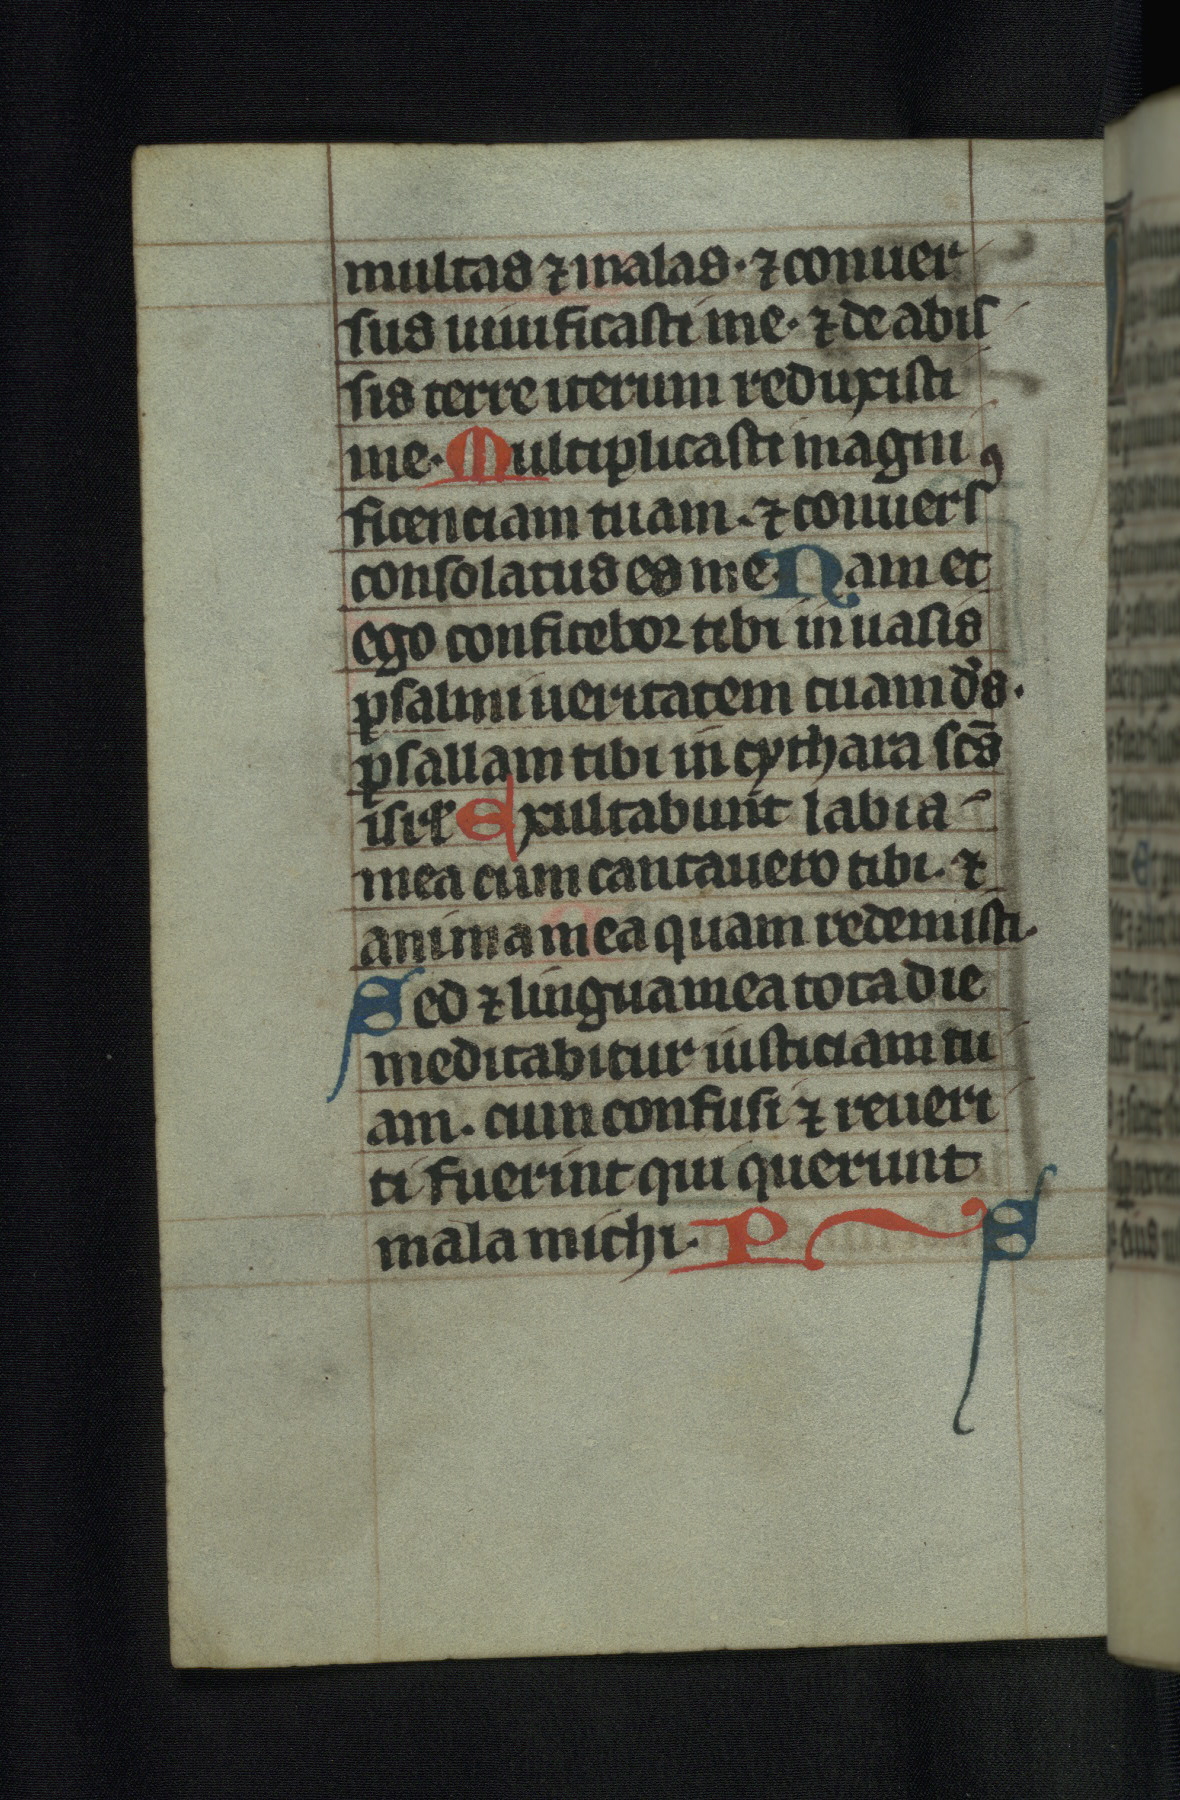 multas ⁊ malas · ⁊ conuer
sus uiuificasti me · ⁊ de abis
sis terre iterum reduxisti
me · Multiplicasti magni
ficenciam tuam · ⁊ conuersꝰ
consolatus es me · Nam et
ego confitebor tibi in uasis
psalmi ueritatem tuam ds̄ ·
psallam tibi in cythara scs̄
isrl̄ Exultabunt labia
mea cum cantauero tibi · ⁊
anima mea quam redemisti ·
Sed ⁊ lingua mea tota die
meditabitur iusticiam tu
am · cum confusi ⁊ reueri
ti fuerint qui querunt
mala michi · P S